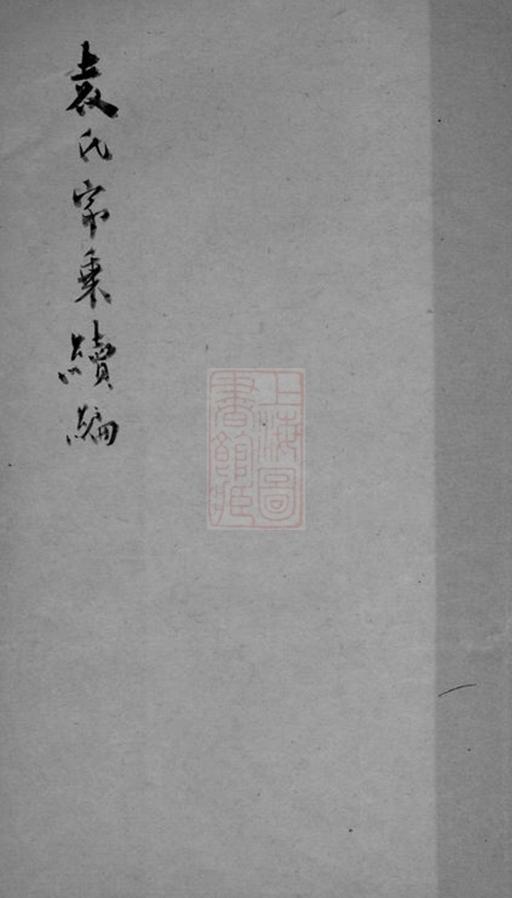 袁氏家乘續編
上海圖
書館藏